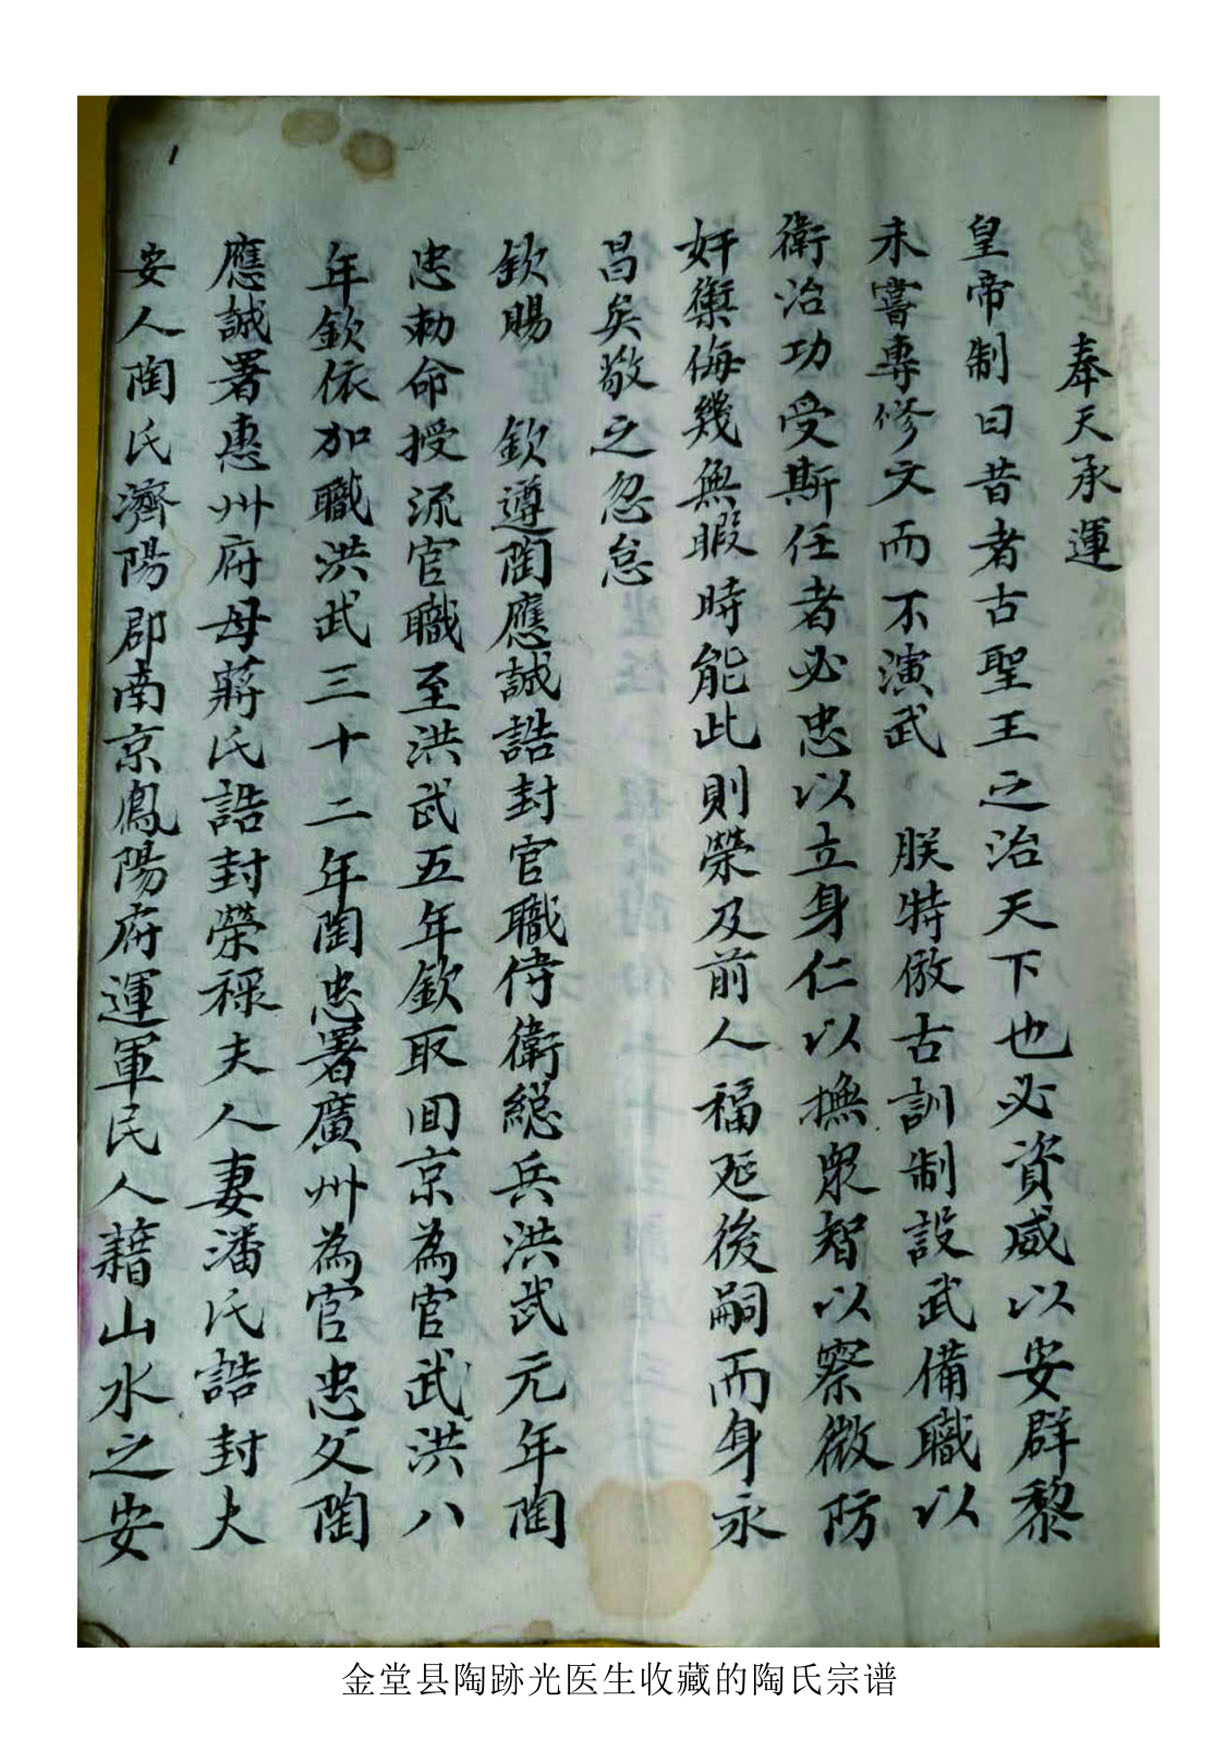 奉天承運
皇帝制曰昔者古聖王之治天下也必資威以安群黎
未嘗專修文而不演武 朕特倣古訓制設武備職以
衛治功受斯任者必忠以立身仁以撫衆智以察微防
奸禦侮幾無暇時能此則榮及前人福延後嗣而身永
昌矣敬之忽怠
欽賜 欽遵陶應誠誥封官職侍衛総兵洪武元年陶
忠勅命授流官職至洪武五年欽取囬京為官武洪八
年欽依加職洪武三十二年陶忠署廣州為官忠父陶
應誠署惠州府母蔣氏誥封榮祿夫人妻潘氏誥封夫
安人陶氏濟陽郡南京鳳陽府運軍民人籍山水之安
1
金堂县陶跡光医生收藏的陶氏宗谱